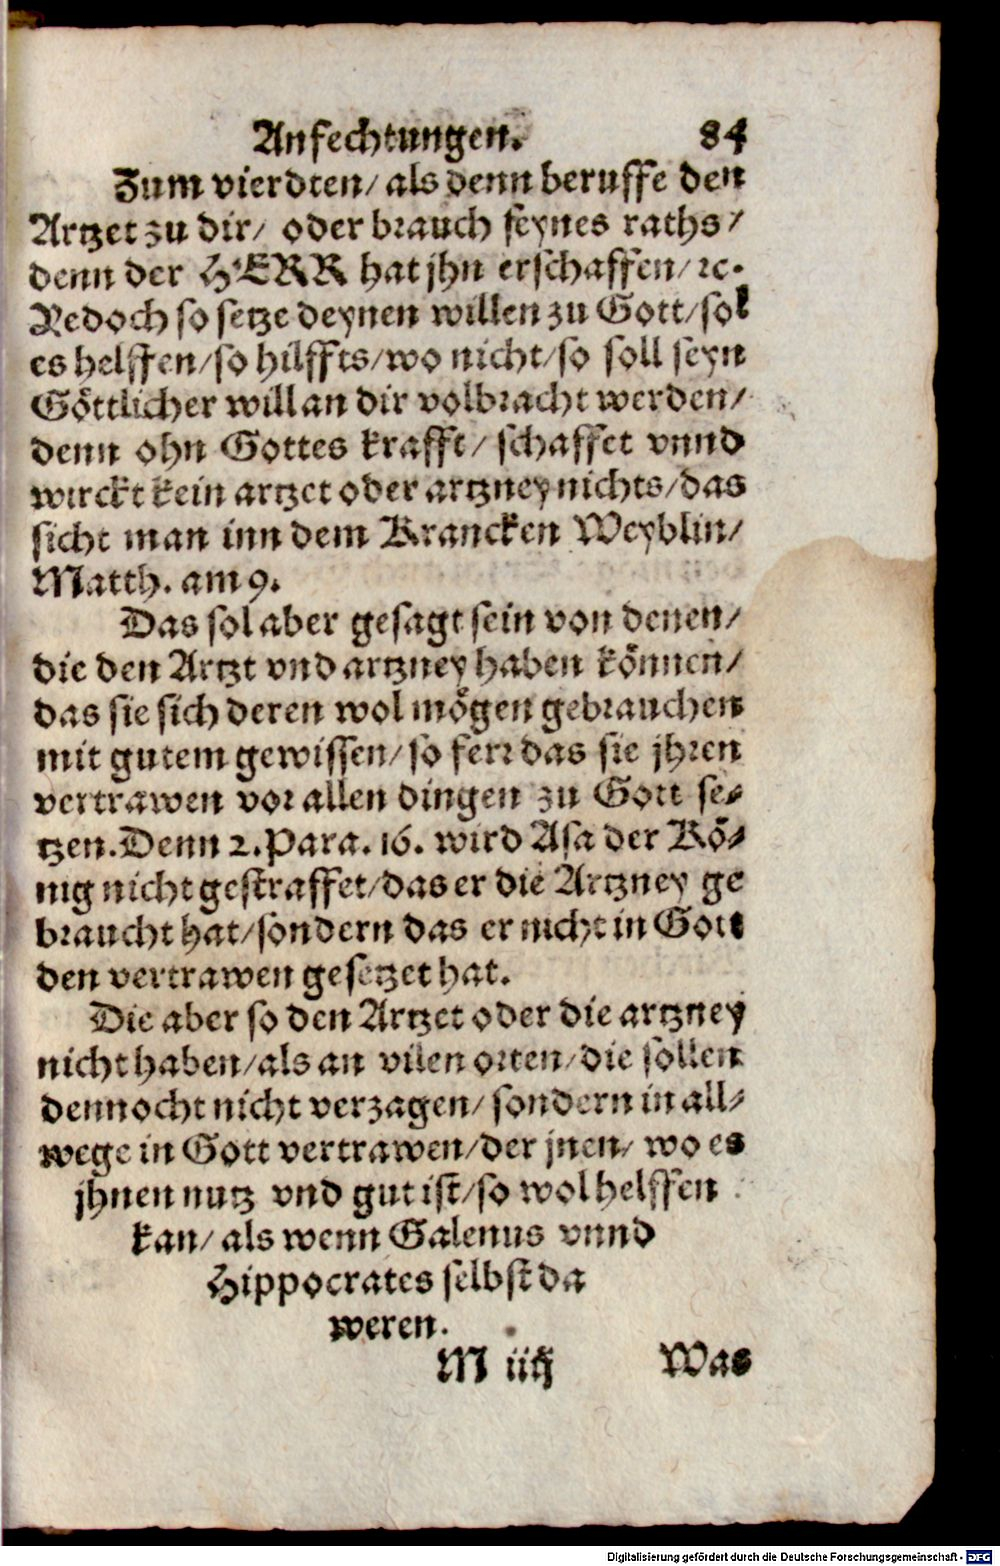 Anfechtungen. 84
Zum vierdten/ als denn beruffe den
Artzet zu dir/ oder brauch seynes raths/
denn der HERR hat jhn erschaffen/ ꝛc.
Yedoch so setze deynen willen zu Gott/ sol
es helffen/ so hilffts/ wo nicht/ so soll seyn
Göttlicher will an dir volbracht werden/
denn ohn Gottes krafft/ schaffet vnnd
wirckt kein artzet oder artzney nichts/ das
sicht man inn dem Krancken Weyblin/
Matth. am 9.
Das sol aber gesagt sein von denen/
die den Artzt vnd artzney haben können/
das sie sich deren wol mögen gebrauchen
mit gutem gewissen/ so ferr das sie jhren
vertrawen vor allen dingen zu Gott se-
tzen. Denn 2. Para. 16. wird Asa der Kö-
nig nicht gestraffet/ das er die Artzney ge
braucht hat/ sondern das er nicht in Gott
den vertrawen gesetzet hat.
Die aber so den Artzet oder die artzney
nicht haben/ als an vilen orten/ die sollen
dennocht nicht verzagen/ sondern in all-
wege in Gott vertrawen/ der jnen/ wo es
jhnen nutz vnd gut ist/ so wol helffen
kan/ als wenn Galenus vnnd
Hippocrates selbst da
weren.
M iiij Was
Digitalisierung gefördert durch die Deutsche Forschungsgemeinschaft - DFG